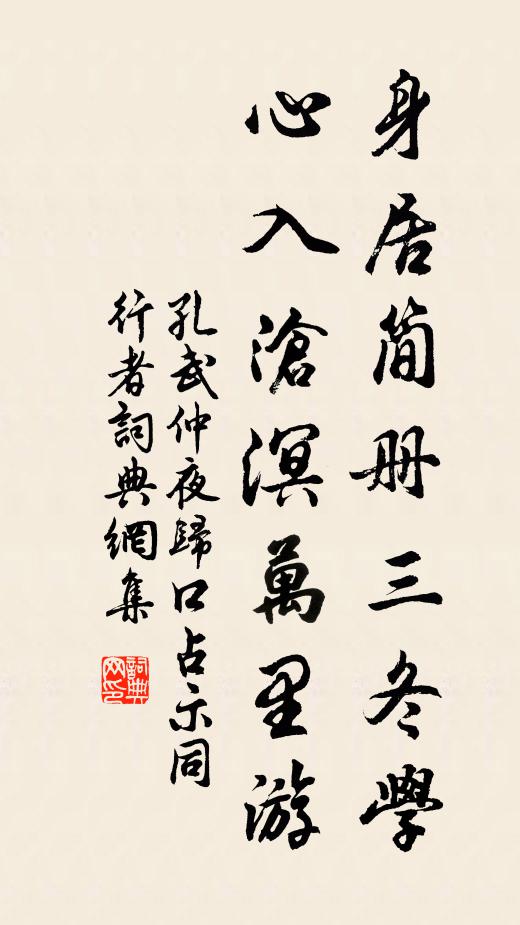 身居简册三冬學
心入滄溟萬里游
孔武仲夜歸口占示同
行者詞典網集
詞典网印